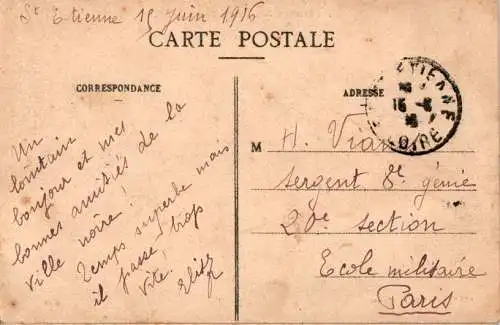 St Etienne 15 juin 1916
CARTE POSTALE
CORRESPONDANCE
Un
lointain
bonjour et mes
bonnes amitiés de la
ville noire!
Temps superbe mais
il passe trop
vite!
ADRESSE
ETIENNE
LOIRE
M H. Vian
sergent 8e génie
20e section
Ecole militaire
Paris